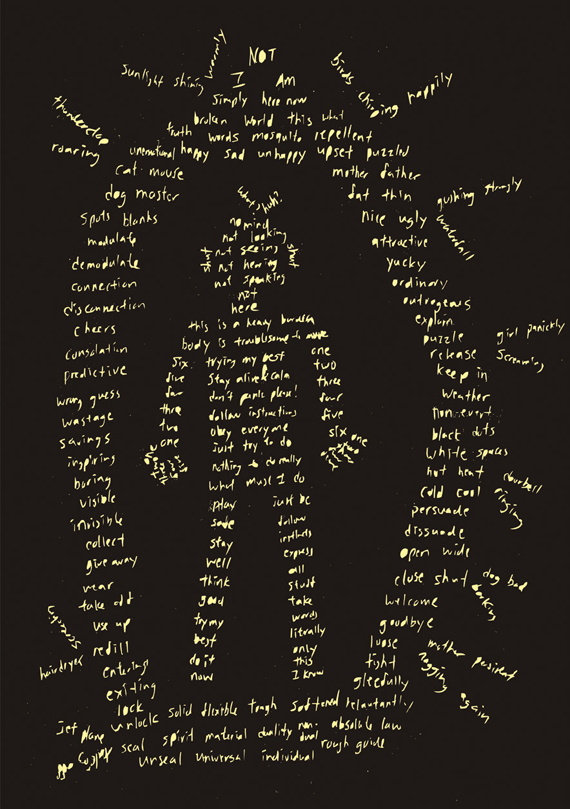 NOT
I Am
simply here now
broken world this what
truth words mosquito repellent
unenatural happy sad unhappy upset puzzled
sunlight shining
warmly
birds chirping happily
thunderclap
roaring
cat mouse
dog master
spots blanks
modulate
demodulate
connection
disconnection
cheers
consolation
predictive
wrong guess
wastage
savings
inspiring
boring
visible
invisible
collect
give away
wear
take off
use up
refill
entering
exiting
lock
unlock solid flexible tough softened reluctantly
seal spirit material duality non dual absolute law
unseal universal individual rough guide
mother father
fat thin
nice ugly
attractive
yucky
ordinary
outrageous
explain
puzzle
release
keep in
weather
black dots
white spaces
hot heat
cold cool
persuade
dissuade
open wide
close shut
welcome
goodbye
loose
tight
gleefully
gushing strongly
waterfall
girl panickly
screaming
doorbell
ringing
dog bad
barking
mother persistent
nagging again
hairdryer
jet plane
what's
no mind
not looking
not seeing
not hearing
not speaking
not
here
shut
shut
this is a heavy burden
body is troublesome to
trying my best
stay alive
don't panic please!
follow instructions
obey everyone
just try to do
nothing to do really
what must I do
six
five
four
three
two
one
one
two
three
four
five
six
one
play
safe
stay
well
think
good
try my
best
do it
now
just be
follow
instincts
express
all
stuff
take
words
literally
only
this
I know